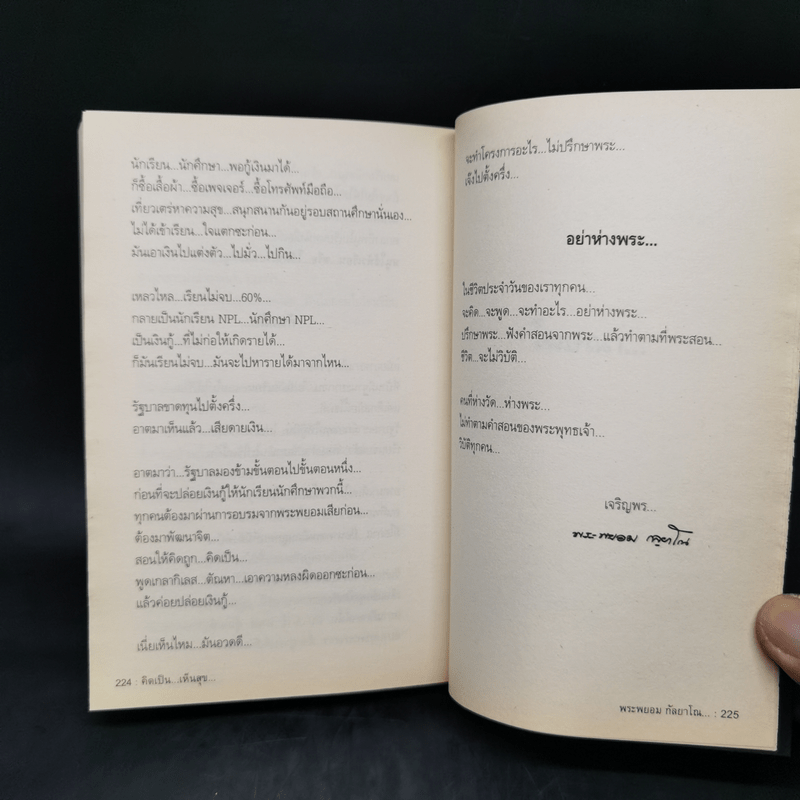 นักเรียน...นักศึกษา...พอกู้เงินมาได้...
ก็ซื้อเสื้อผ้า...ซื้อเพจเจอร์...ซื้อโทรศัพท์มือถือ...
เที่ยวเตร่หาความสุข...สนุกสนานกันอยู่รอบสถานศึกษานั่นเอง...
ไม่ได้เข้าเรียน...ใจแตกซะก่อน...
มันเอาเงินไปแต่งตัว...ไปมั่ว...ไปกิน...
เหลวไหล...เรียนไม่จบ...60%...
กลายเป็นนักเรียน NPL...นักศึกษา NPL...
เป็นเงินกู้...ที่ไม่ก่อให้เกิดรายได้...
ก็มันเรียนไม่จบ...มันจะไปหารายได้มาจากไหน...
รัฐบาลขาดทุนไปตั้งครึ่ง...
อาตมาเห็นแล้ว...เสียดายเงิน...
อาตมาว่า...รัฐบาลมองข้ามขั้นตอนไปขั้นตอนหนึ่ง...
ก่อนที่จะปล่อยเงินกู้ให้นักเรียนนักศึกษาพวกนี้...
ทุกคนต้องมาผ่านการอบรมจากพระพยอมเสียก่อน...
ต้องมาพัฒนาจิต...
สอนให้คิดถูก...คิดเป็น...
พูดเกลากิเลส...ตัณหา...เอาความหลงผิดออกซะก่อน...
แล้วค่อยปล่อยเงินกู้...
เนี่ยเห็นไหม...มันอวดดี...
224 : คิดเป็น...เห็นสุข...
จะทำโครงการอะไร...ไม่ปรึกษาพระ...
เจ๊งไปตั้งครึ่ง...
อย่าห่างพระ...
ในชีวิตประจำวันของเราทุกคน...
จะคิด...จะพูด...จะทำอะไร...อย่าห่างพระ...
ปรึกษาพระ...ฟังคำสอนจากพระ...แล้วทำตามที่พระสอน...
ชีวิต...จะไม่วิบัติ...
คนที่ห่างวัด...ห่างพระ...
ไม่ทำตามคำสอนของพระพุทธเจ้า...
วิบัติทุกคน...
เจริญพร...
พระพยอม กลฺยาโณ
พระพยอม กัลยาโณ... : 225